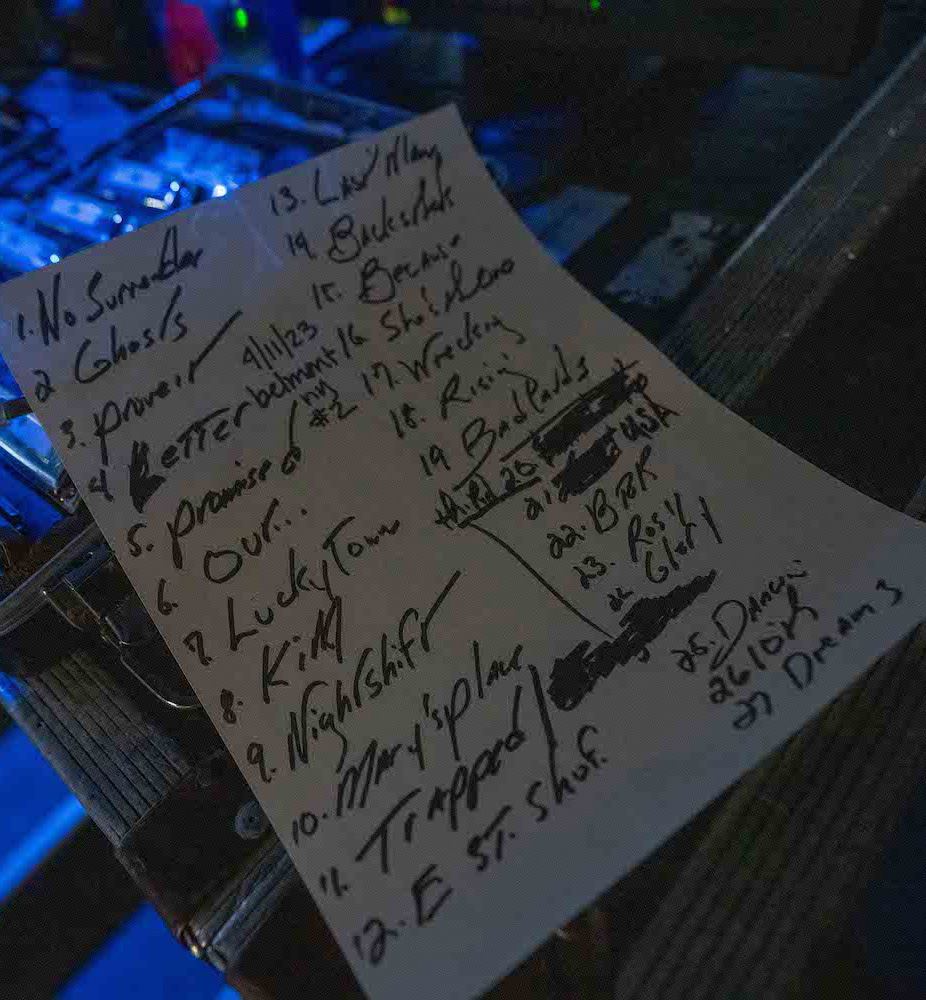 1. No Surrender
2 Ghosts
3. prove it
4 Letter
5. promised
6. Our...
7. Lucky Town
8. Kitty
9. Nightshift
10. Mary's place
11. Trapped
12. E ST. Shuf.
4/11/23
belmont
ny
#2
13. Last Man
14. Backstreets
15. Because
16 She's the One
17. Wrecking
18. Rising
19 Badlands
th. Rd 20
21. USA
22. BTR
23. Rosy
24 Glory
25. Dancin
26 10th
27 Dreams